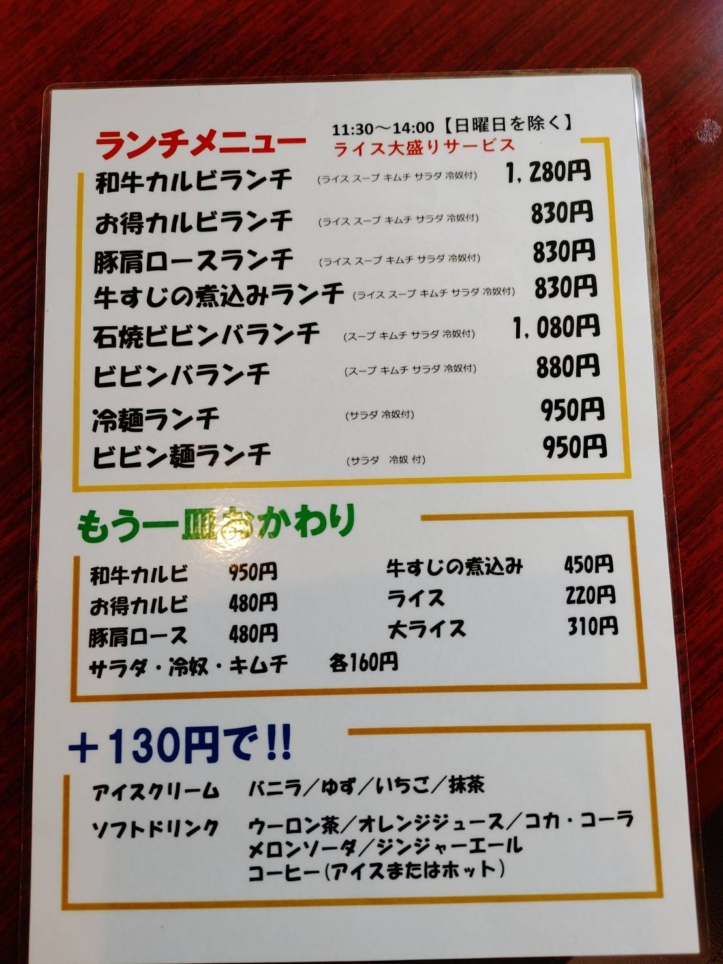 ランチメニュー 11:30～14:00【日曜日を除く】
ライス大盛りサービス
和牛カルビランチ (ライス スープ キムチ サラダ 冷奴付) 1,280円
お得カルビランチ (ライス スープ キムチ サラダ 冷奴付) 830円
豚肩ロースランチ (ライス スープ キムチ サラダ 冷奴付) 830円
牛すじの煮込みランチ (ライス スープ キムチ サラダ 冷奴付) 830円
石焼ビビンバランチ (スープ キムチ サラダ 冷奴付) 1,080円
ビビンバランチ (スープ キムチ サラダ 冷奴付) 880円
冷麺ランチ (サラダ 冷奴付) 950円
ビビン麺ランチ (サラダ 冷奴 付) 950円
もう一皿おかわり
和牛カルビ 950円 牛すじの煮込み 450円
お得カルビ 480円 ライス 220円
豚肩ロース 480円 大ライス 310円
サラダ・冷奴・キムチ 各160円
＋130円で!!
アイスクリーム バニラ／ゆず／いちご／抹茶
ソフトドリンク ウーロン茶／オレンジジュース／コカ・コーラ
メロンソーダ／ジンジャーエール
コーヒー(アイスまたはホット)